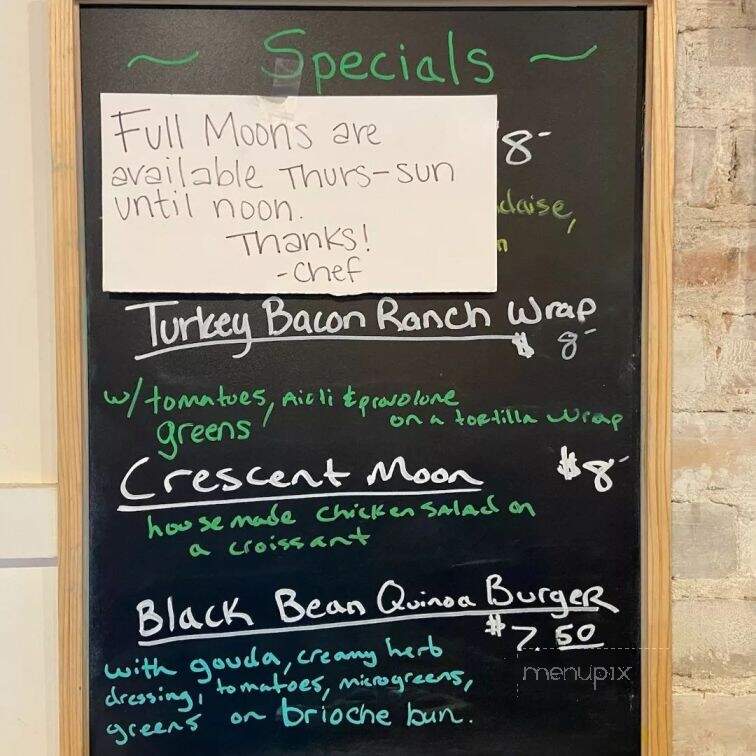 ~ Specials ~
Full Moons are
available Thurs-sun
until noon.
Thanks!
-chef
8-
daise,
n
Turkey Bacon Ranch Wrap
$ 8-
w/tomatoes, Aioli & provolone
greens on a tortilla wrap
Crescent Moon $8-
house made chicken salad on
a croissant
Black Bean Quinoa Burger
$7.50
with gouda, creamy herb
dressing, tomatoes, microgreens,
greens on brioche bun.
menupix